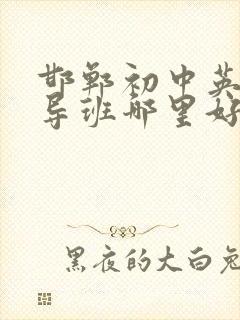 邯郸初中英
导班哪里好
黑夜的大白兔